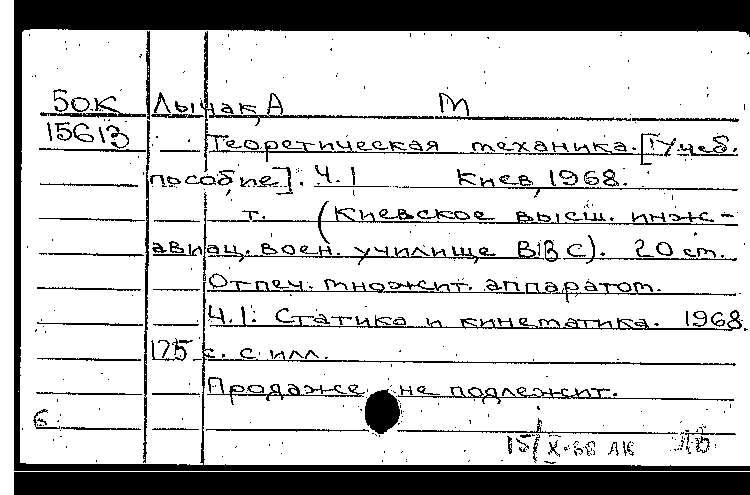 50К Лычак, А М
15613 Теоретическая механика. [Учеб.
пособие]. Ч.1 Киев, 1968.
т. (Киевское высш. инж-
авиац. воен. училище ВВС). 20 ст.
Отпеч. множит. аппаратом.
Ч.1. Статика и кинематика. 1968.
175 с. с илл.
Продаже не подлежит.
6
15/X-68 ЛК ЛБ